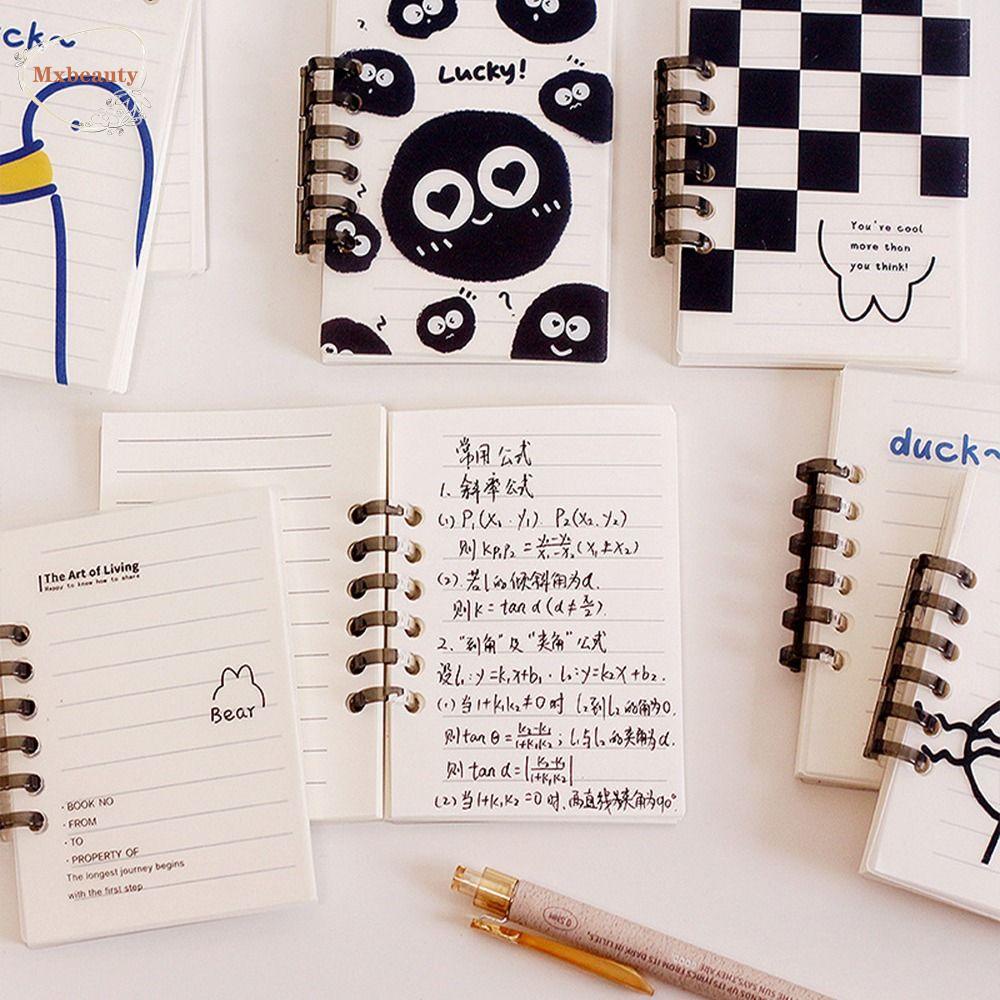 ck~
Mxbeauty
Lucky!
You're cool
more than
you think!
duck~
常用公式
1. 斜率公式
(1) P₁(X₁·Y₁). P₂(X₂,Y₂)
则 KP₁P₂ = y₁-y₂/x₁-x₂ (x₁≠x₂)
(2). 若l的倾斜角为α.
则k = tan α (α ≠ π/2).
2. "到角" 及 "夹角" 公式
设l₁: y=k₁x+b₁. l₂: y=k₂x+b₂.
(1) 当1+k₁k₂≠0时 l₁到l₂的角为θ.
则tan θ = k₂-k₁/1+k₁k₂; l₁与l₂的夹角为α.
则 tan α = |k₂-k₁/1+k₁k₂|
(2) 当1+k₁k₂=0时、两直线夹角为90°
The Art of Living
Happy to know how to share
Bear
· BOOK NO
· FROM
· TO
· PROPERTY OF
The longest journey begins
with the first step
0.5mm